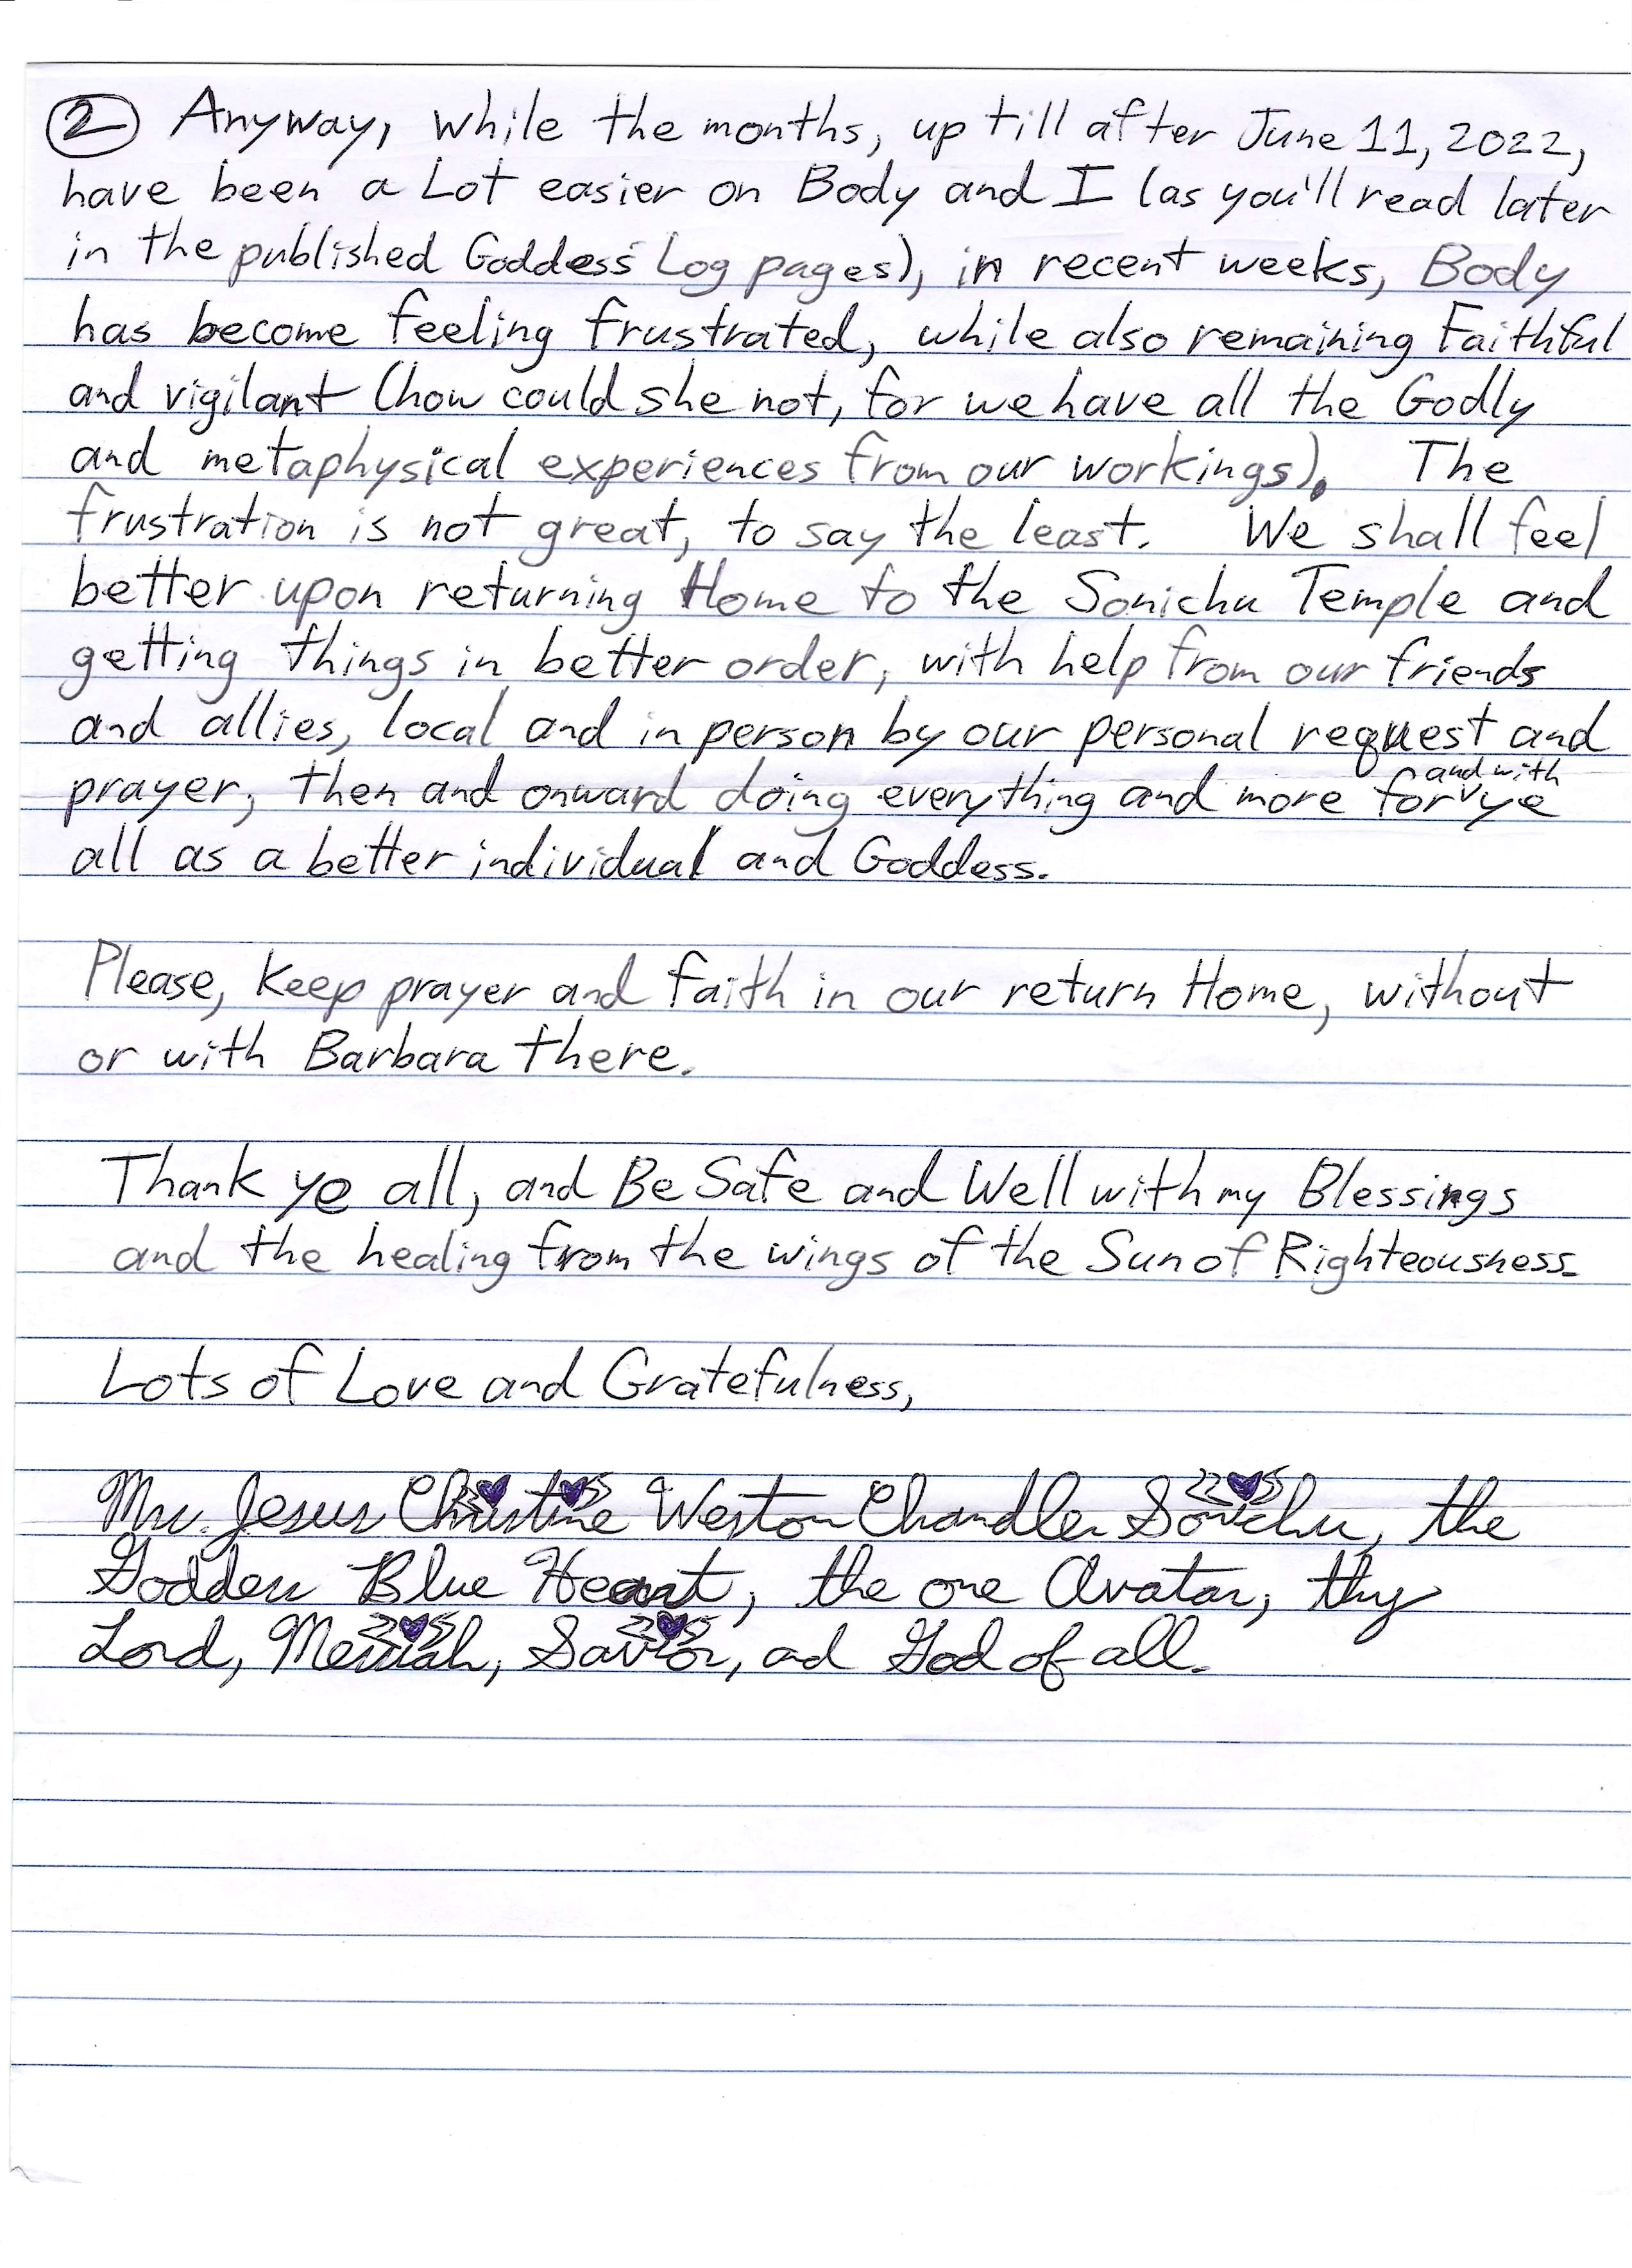 ② Anyway, while the months, up till after June 11, 2022,
have been a Lot easier on Body and I (as you'll read later
in the published Goddess Log pages), in recent weeks, Body
has become feeling frustrated, while also remaining Faithful
and vigilant (how could she not, for we have all the Godly
and metaphysical experiences from our workings). The
frustration is not great, to say the least. We shall feel
better upon returning Home to the Sonichu Temple and
getting things in better order, with help from our friends
and allies, local and in person by our personal request and
prayer, then and onward doing everything and more for and with ye
all as a better individual and Goddess.
Please, Keep prayer and faith in our return Home, without
or with Barbara there.
Thank ye all, and Be Safe and Well with my Blessings
and the healing from the wings of the Sun of Righteousness.
Lots of Love and Gratefulness,
Jesus Christine Weston Chandler Sonichu, the
Goddess Blue Heart, the one Avatar, thy
Lord, Messiah, Savior, ad God of all.